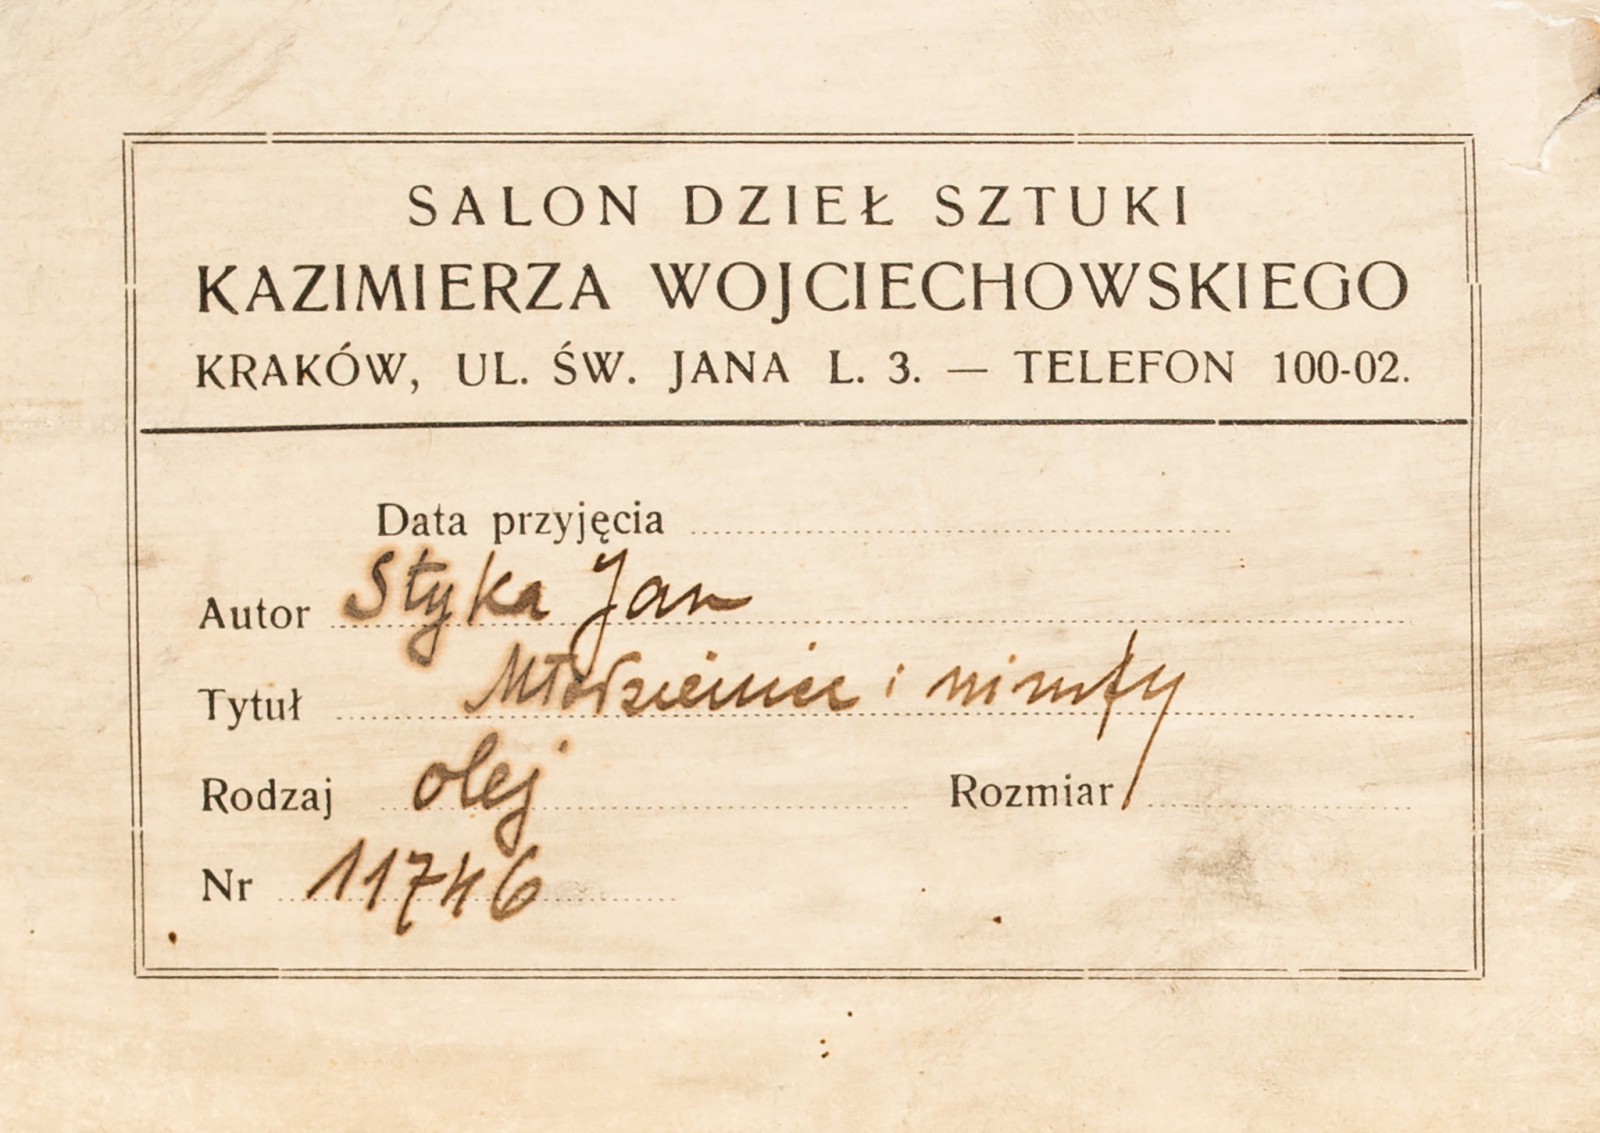 SALON DZIEŁ SZTUKI
KAZIMIERZA WOJCIECHOWSKIEGO
KRAKÓW, UL. ŚW. JANA L. 3. — TELEFON 100-02.
Data przyjęcia
Autor Styka Jan
Tytuł Młodzieniec i nimfy
Rodzaj olej Rozmiar
Nr 11746